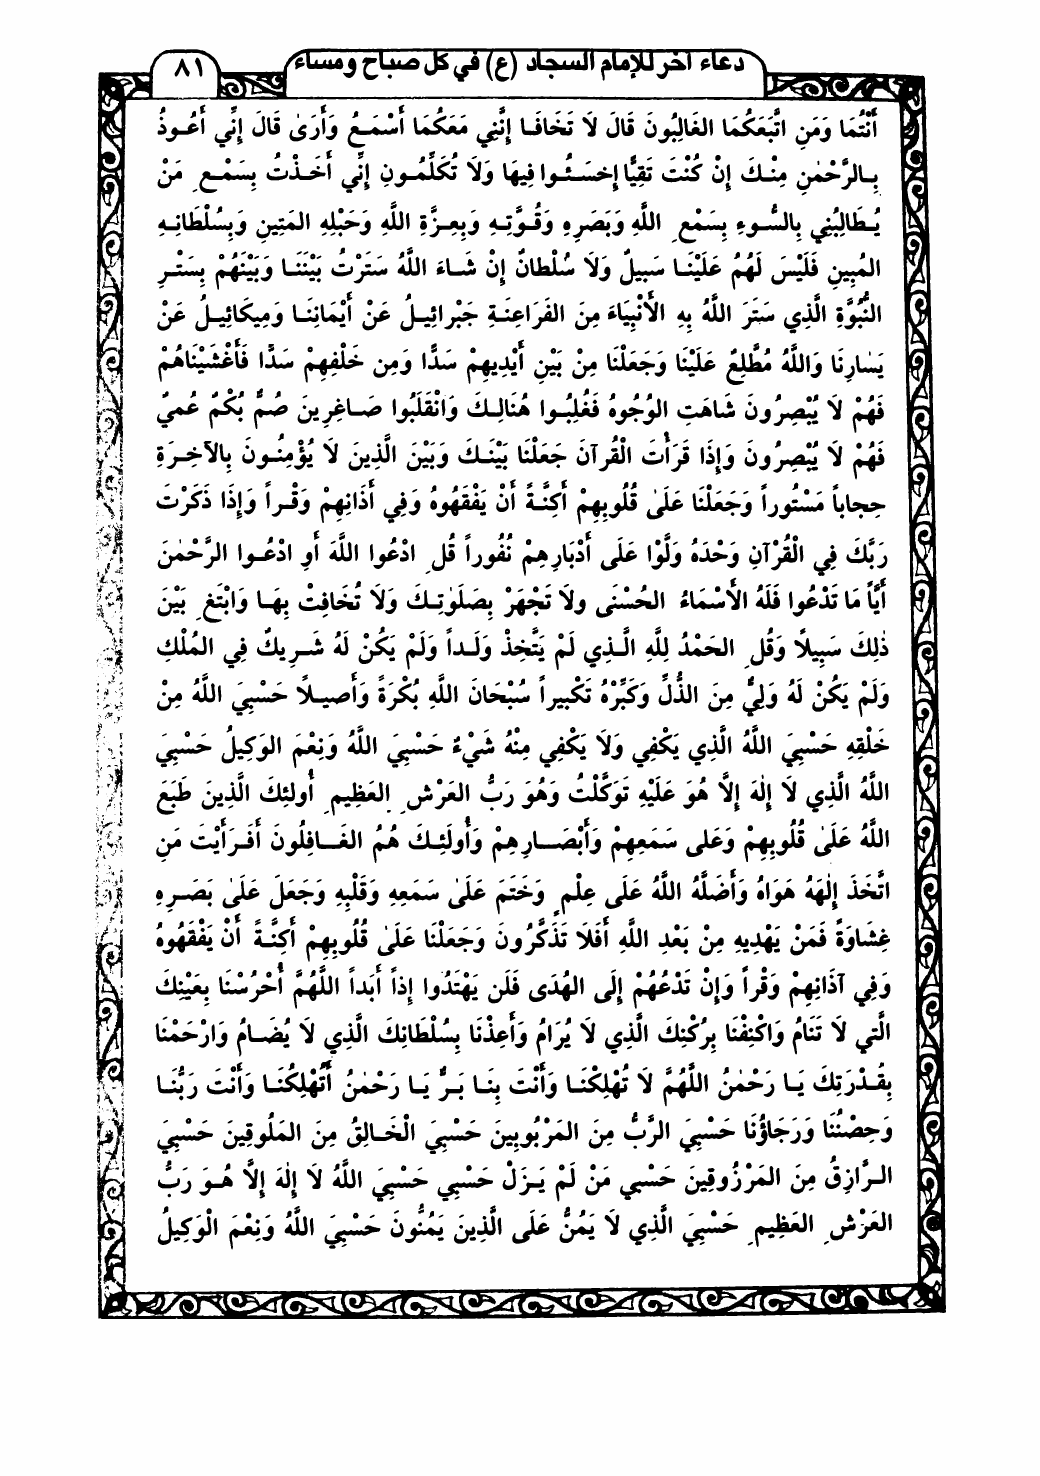 دعاء آخر للإمام السجاد (ع) في كل صباح ومساء
٨١
أَنْتُمَا وَمَنِ اتَّبَعَكُمَا الغَالِبُونَ قَالَ لَا تَخَافَا إِنَّنِي مَعَكُمَا أَسْمَعُ وَأَرَىٰ قَالَ إِنِّي أَعُوذُ
بِالرَّحْمٰنِ مِنْكَ إِنْ كُنْتَ تَقِيًّا إِخسَئُوا فِيهَا وَلَا تُكَلِّمُونِ إِنِّي أَخَذْتُ بِسَمْعِ مَنْ
يُطَالِبُنِي بِالسُّوءِ بِسَمْعِ اللَّهِ وَبَصَرِهِ وَقُوَّتِهِ وَبِعِزَّةِ اللَّهِ وَحَبْلِهِ المَتِينِ وَبِسُلْطَانِهِ
المُبِينِ فَلَيْسَ لَهُمْ عَلَيْنَا سَبِيلٌ وَلَا سُلْطانٌ إِنْ شَاءَ اللَّهُ سَتَرْتُ بَيْنَنَا وَبَيْنَهُمْ بِسَتْرِ
النُّبُوَّةِ الَّذِي سَتَرَ اللَّهُ بِهِ الأَنْبِيَاءَ مِنَ الفَرَاعِنَةِ جَبْرائِيلُ عَنْ أَيْمَانِنَا وَمِيكَائِيلُ عَنْ
يَسٰارِنَا وَاللَّهُ مُطَّلِعٌ عَلَيْنَا وَجَعَلْنَا مِنْ بَيْنِ أَيْدِيهِمْ سَدًّا وَمِن خَلْفِهِمْ سَدًّا فَأَغْشَيْنَاهُمْ
فَهُمْ لَا يُبْصِرُونَ شَاهَتِ الوُجُوهُ فَغُلِبُوا هُنَالِكَ وَانْقَلَبُوا صَاغِرِينَ صُمٌّ بُكْمٌ عُميٌ
فَهُمْ لَا يُبْصِرُونَ وَإِذَا قَرَأْتَ الْقُرآنَ جَعَلْنَا بَيْنَكَ وَبَيْنَ الَّذِينَ لَا يُؤْمِنُونَ بِالآخِرَةِ
حِجاباً مَسْتُوراً وَجَعَلْنَا عَلَىٰ قُلُوبِهِمْ أَكِنَّةً أَنْ يَفْقَهُوهُ وَفِي أَذَانِهِمْ وَقْراً وَإِذَا ذَكَرْتَ
رَبَّكَ فِي الْقُرْآنِ وَحْدَهُ وَلَّوْا عَلَى أَدْبَارِهِمْ نُفُوراً قُلِ ادْعُوا اللَّهَ أَوِ ادْعُوا الرَّحْمٰنَ
أَيَّاً مَا تَدْعُوا فَلَهُ الأَسْمَاءُ الحُسْنَى ولَا تَجْهَرْ بِصَلَوٰتِكَ وَلَا تُخَافِتْ بِهَا وَابْتَغِ بَيْنَ
ذٰلِكَ سَبِيلًا وَقُلِ الحَمْدُ لِلَّهِ الَّذِي لَمْ يَتَّخِذْ وَلَداً وَلَمْ يَكُنْ لَهُ شَرِيكٌ فِي المُلْكِ
وَلَمْ يَكُنْ لَهُ وَلِيٌّ مِنَ الذُّلِّ وَكَبِّرْهُ تَكْبِيراً سُبْحَانَ اللَّهِ بُكْرَةً وَأَصيلًا حَسْبِيَ اللَّهُ مِنْ
خَلْقِهِ حَسْبِيَ اللَّهُ الَّذِي يَكْفِي وَلَا يَكْفِي مِنْهُ شَيْءٌ حَسْبِيَ اللَّهُ وَنِعْمَ الوَكِيلُ حَسْبِيَ
اللَّهُ الَّذِي لَا إِلٰهَ إِلَّا هُوَ عَلَيْهِ تَوَكَّلْتُ وَهُوَ رَبُّ العَرْشِ العَظِيمِ أُولئِكَ الَّذِينَ طَبَعَ
اللَّهُ عَلَىٰ قُلُوبِهِمْ وَعَلى سَمَعِهِمْ وَأَبْصَارِهِمْ وَأُولَئِكَ هُمُ الغَافِلُونَ أَفَرَأَيْتَ مَنِ
اتَّخَذَ إِلٰهَهُ هَوَاهُ وَأَضَلَّهُ اللَّهُ عَلَى عِلْمٍ وَخَتَمَ عَلَىٰ سَمَعِهِ وَقَلْبِهِ وَجَعَلَ عَلَىٰ بَصَرِهِ
غِشَاوَةً فَمَنْ يَهْدِيهِ مِنْ بَعْدِ اللَّهِ أَفَلَا تَذَكَّرُونَ وَجَعَلْنَا عَلَىٰ قُلُوبِهِمْ أَكِنَّةً أَنْ يَفْقَهُوهُ
وَفِي آذَانِهِمْ وَقْراً وَإِنْ تَدْعُهُمْ إِلَى الهُدَى فَلَن يَهْتَدُوا إِذاً أَبَداً اللَّهُمَّ أُحْرُسْنَا بِعَيْنِكَ
الَّتي لَا تَنَامُ وَاكْنِفْنَا بِرُكْنِكَ الَّذِي لَا يُرَامُ وَأَعِذْنَا بِسُلْطَانِكَ الَّذِي لَا يُضَامُ وَارْحَمْنَا
بِقُدْرَتِكَ يَا رَحْمٰنُ اللَّهُمَّ لَا تُهْلِكْنَا وَأَنْتَ بِنَا بَرٌّ يَا رَحْمٰنُ أَتُهْلِكُنَا وَأَنْتَ رَبُّنَا
وَحِصْنُنَا وَرَجَاؤُنَا حَسْبِيَ الرَّبُّ مِنَ المَرْبُوبِينَ حَسْبِيَ الْخَالِقُ مِنَ المَلُوقِينَ حَسْبِيَ
الرَّازِقُ مِنَ المَرْزُوقِينَ حَسْبِي مَنْ لَمْ يَزَلْ حَسْبِي حَسْبِيَ اللَّهُ لَا إِلٰهَ إِلَّا هُوَ رَبُّ
العَرْشِ العَظِيمِ حَسْبِيَ الَّذِي لَا يَمُنُّ عَلَى الَّذِينَ يَمُنُّونَ حَسْبِيَ اللَّهُ وَنِعْمَ الْوَكِيلُ